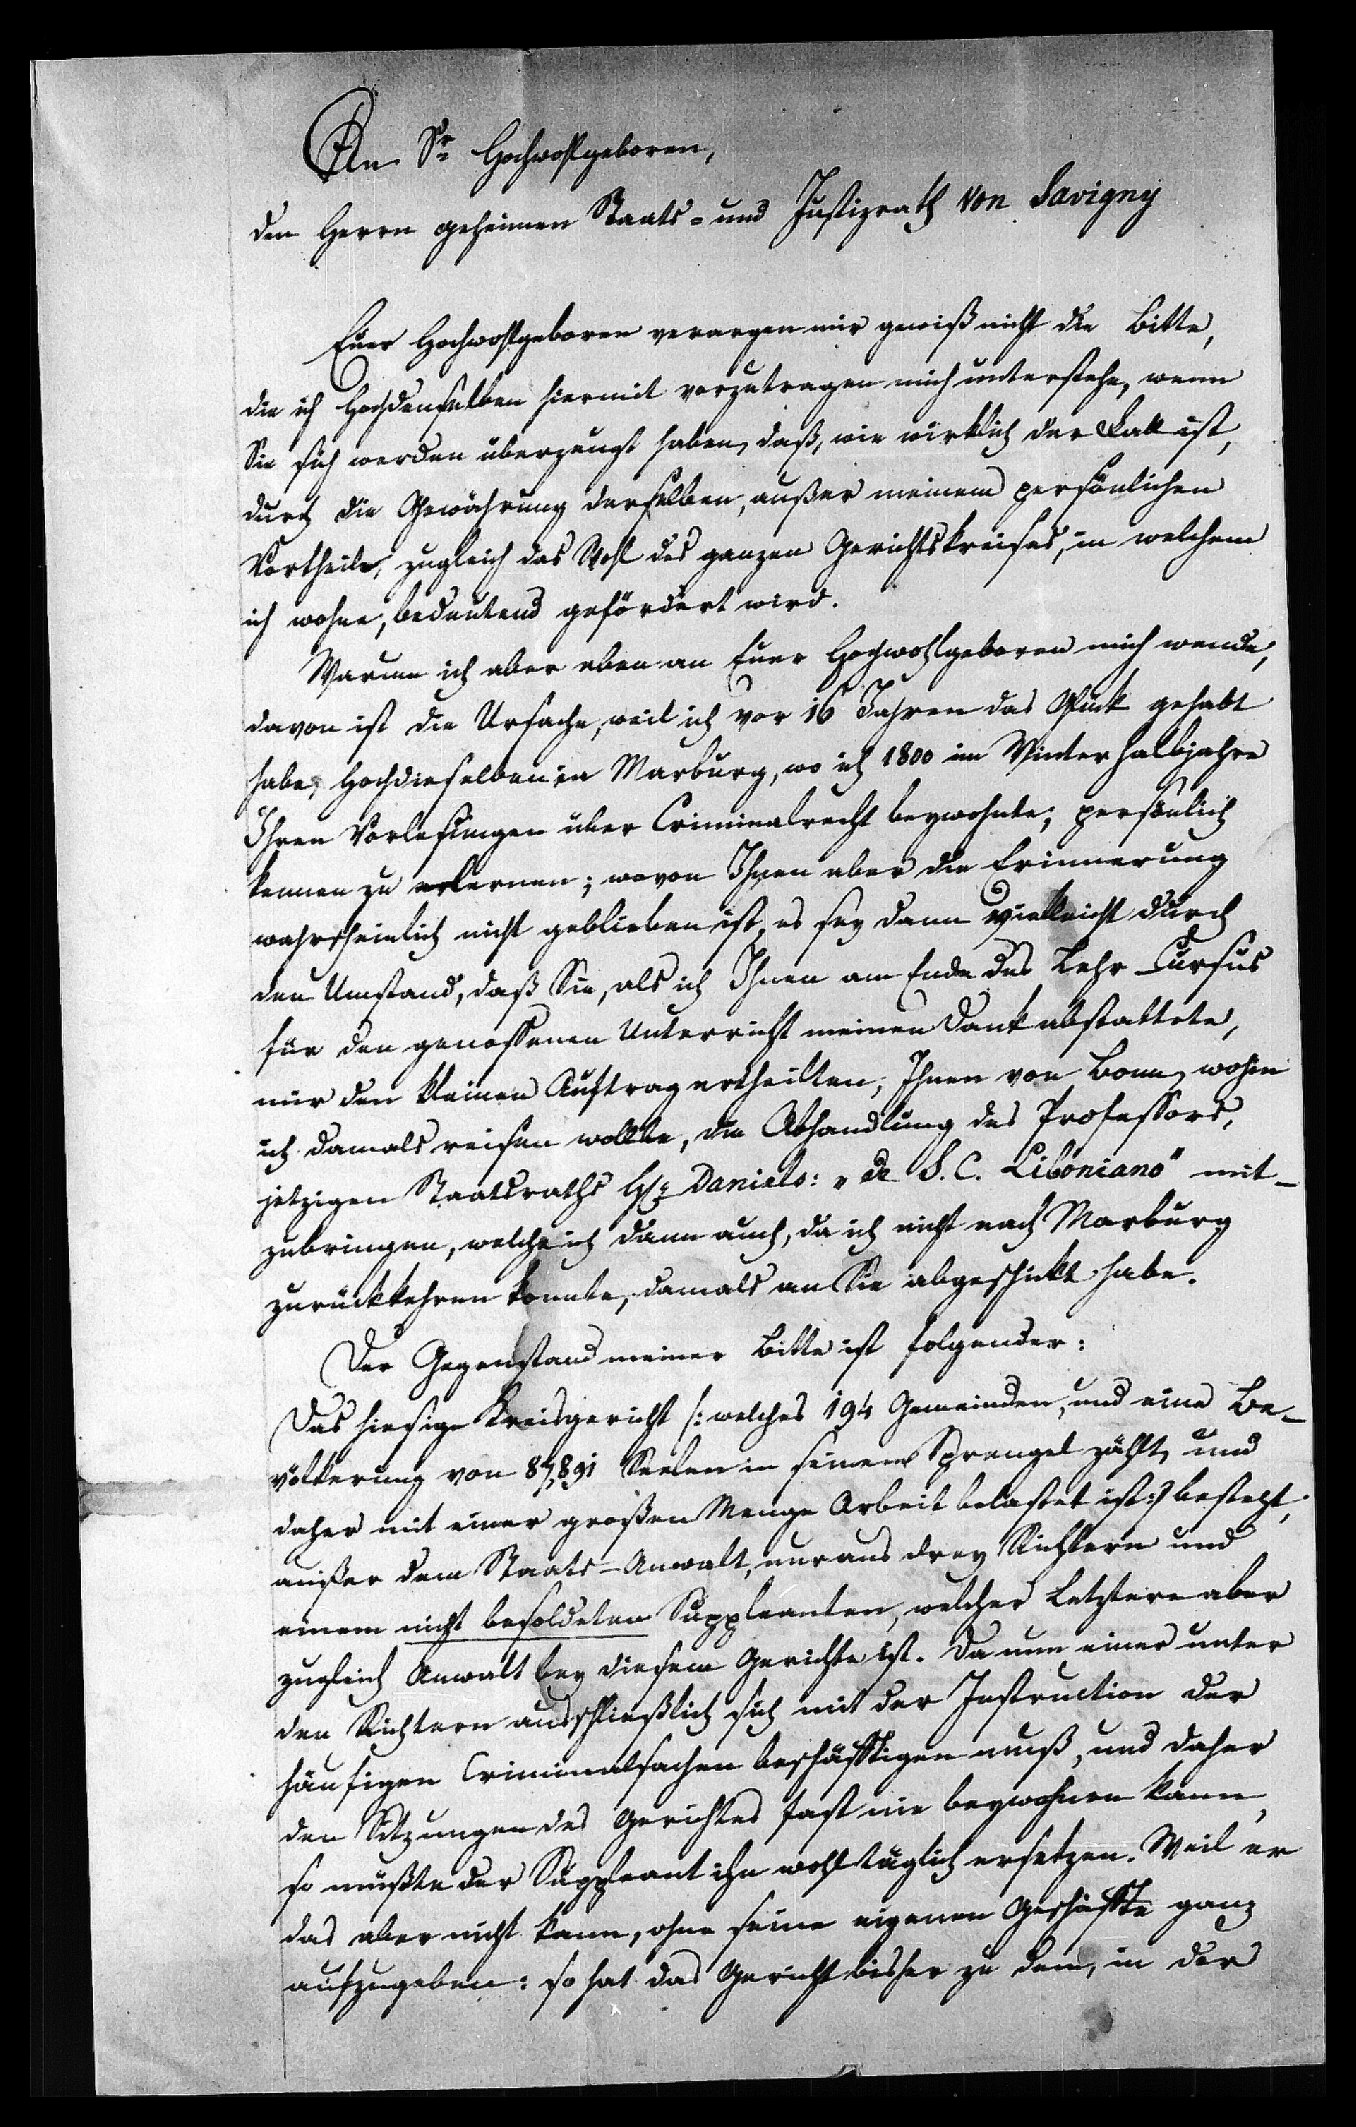 An Sr. Hochwohlgeboren,
den Herrn geheimen Staats- und Justizrath von Savigny
Euer Hochwohlgeboren verargen mir gewiß nicht die Bitte,
die ich Hochdenselben hiermit vorzutragen mich unterstehe, wenn
Sie sich werden überzeugt haben, daß, wie wirklich der Fall ist,
durch die Gewährung derselben, außer meinem persönlichen
Vortheile, zugleich das Wohl des ganzen Gerichtskreises, in welchem
ich wohne, bedeutend gefördert wird.
Warum ich aber eben an Euer Hochwohlgeboren mich wende,
davon ist die Ursache, weil ich vor 16 Jahren das Glück gehabt
habe, Hochdieselben in Marburg, wo ich 1800 im Winterhalbjahre
Ihren Vorlesungen über Criminalrecht beywohnte, persönlich
kennen zu erlernen; wovon Ihnen aber die Erinnerung
wahrscheinlich nicht geblieben ist, es sey dann vielleicht durch
den Umstand, daß Sie, als ich Ihnen am Ende des Lehr-Cursus
für den genossenen Unterricht meinen Dank abstattete,
mir den kleinen Auftrag ertheilten, Ihnen von Bonn, wohin
ich damals reisen wollte, die Abhandlung des Professors,
jetzigen Staatsraths H. Daniels: „de S. C. Liboniano" mit-
zubringen, welche ich dann auch, da ich nicht nach Marburg
zurückkehren konnte, damals an Sie abgeschickt habe.
Der Gegenstand meiner Bitte ist folgender:
Das hiesige Kreisgericht /: welches 194 Gemeinden, und eine Be-
völkerung von 87,891 Seelen in seinem Sprengel zählt, und
daher mit einer großen Menge Arbeit belastet ist :/ besteht,
außer dem Staats-Anwalt, nur aus drey Richtern und
einem nicht besoldeten Suppleanten, welcher Letztere aber
zugleich Anwalt bey diesem Gerichte ist. Da nun einer unter
den Richtern ausschließlich sich mit der Instruction der
häufigen Criminalsachen beschäftigen muß, und daher
den Sitzungen des Gerichtes fast nie beywohnen kann,
so müßte der Suppleant ihn wohl täglich ersetzen. Weil er
das aber nicht kann, ohne seine eigenen Geschäfte ganz
aufzugeben: so hat das Gericht bisher zu dem, in der